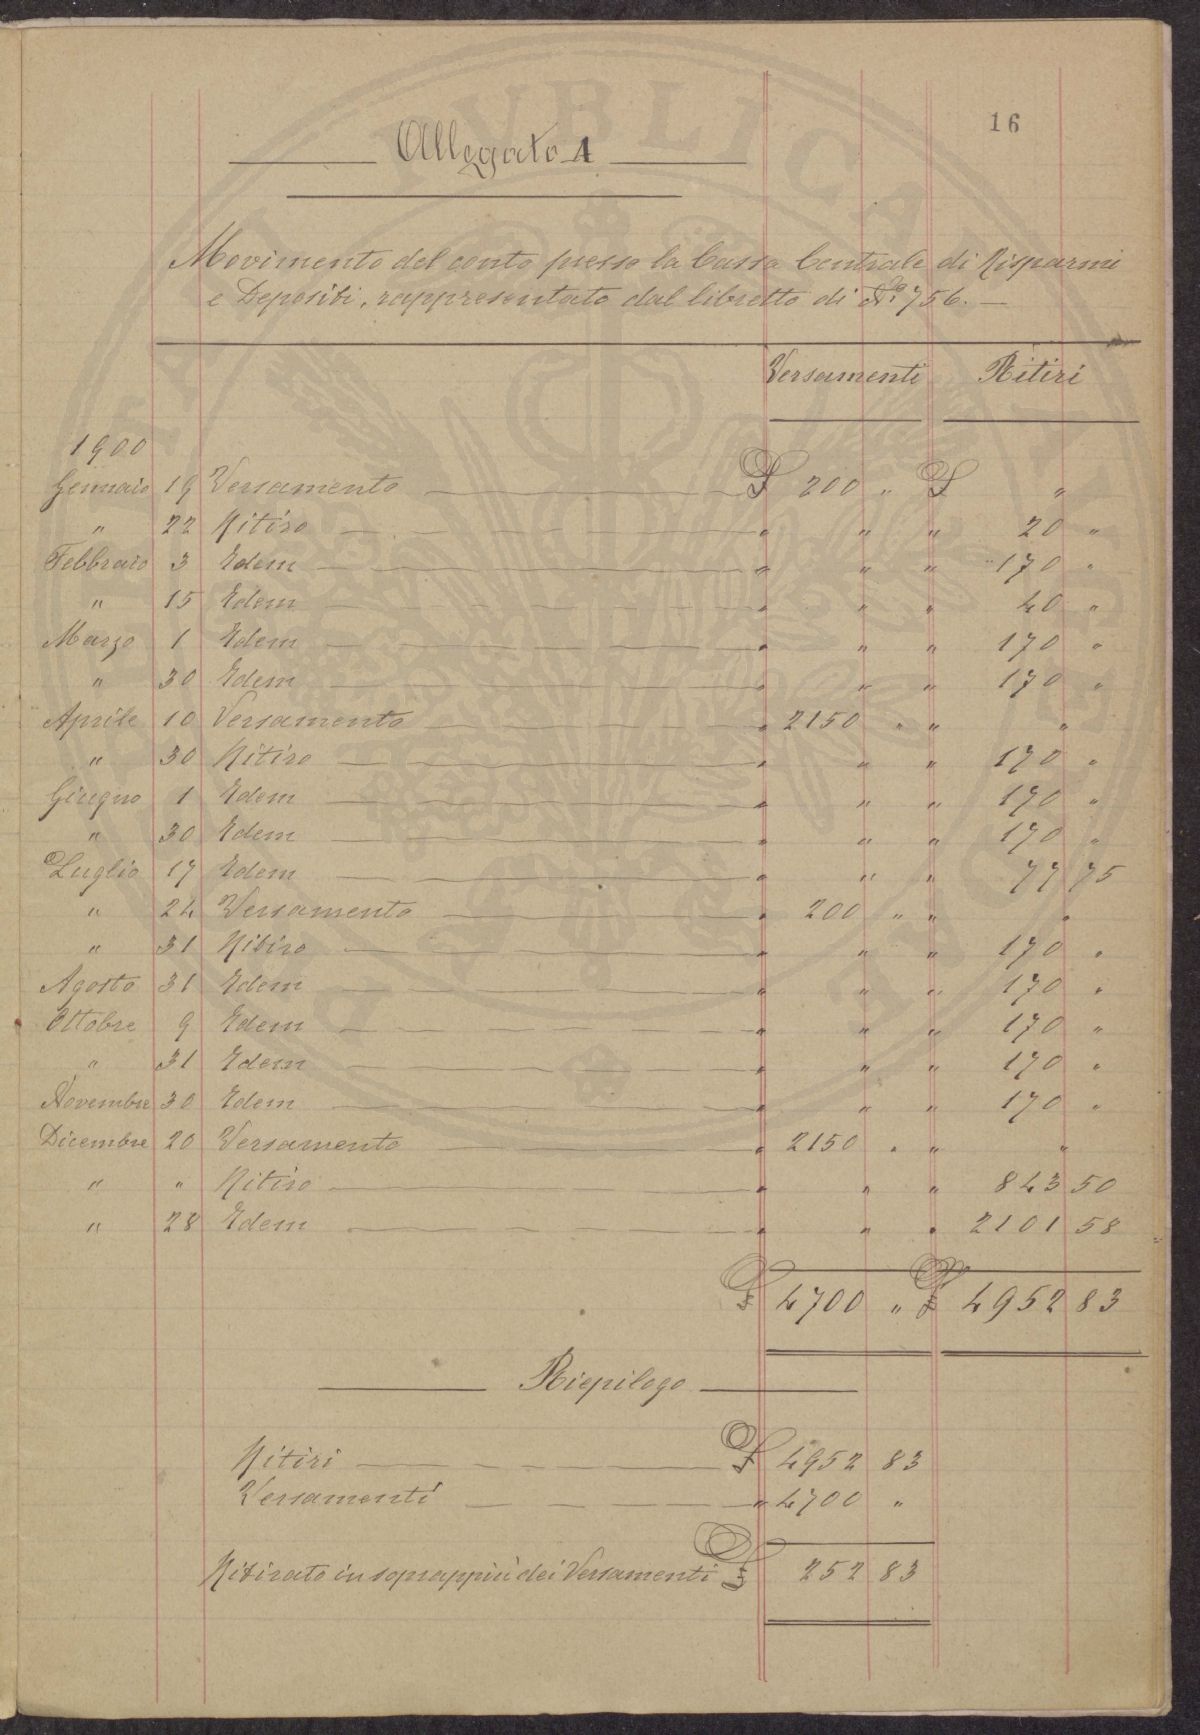 16
Allegato 1
Movimento del conto presso la Cassa Centrale di Risparmi
e Depositi, rappresentato dal libretto di No. 756. —
Versamenti Ritiri
1900
Gennaio 19 Versamento £ 200 " £ "
" 22 Ritiro " " " 20 "
Febbraio 3 Idem " " " 170 "
" 15 Idem " " " 40 "
Marzo 1 Idem " " " 170 "
" 30 Idem " " " 170 "
Aprile 10 Versamento " 2150 " " "
" 30 Ritiro " " " 170 "
Giugno 1 Idem " " " 170 "
" 30 Idem " " " 170 "
Luglio 17 Idem " " " 77 75
" 24 Versamento " 200 " " "
" 31 Ritiro " " " 170 "
Agosto 31 Idem " " " 170 "
Ottobre 9 Idem " " " 170 "
" 31 Idem " " " 170 "
Novembre 30 Idem " " " 170 "
Dicembre 20 Versamento " 2150 " " "
" " Ritiro " " " 843 50
" 28 Idem " " " 2101 58
£ 4700 " £ 4952 83
Riepilogo
Ritiri £ 4952 83
Versamenti " 4700 "
Ritirato in soprappiù dei Versamenti £ 252 83